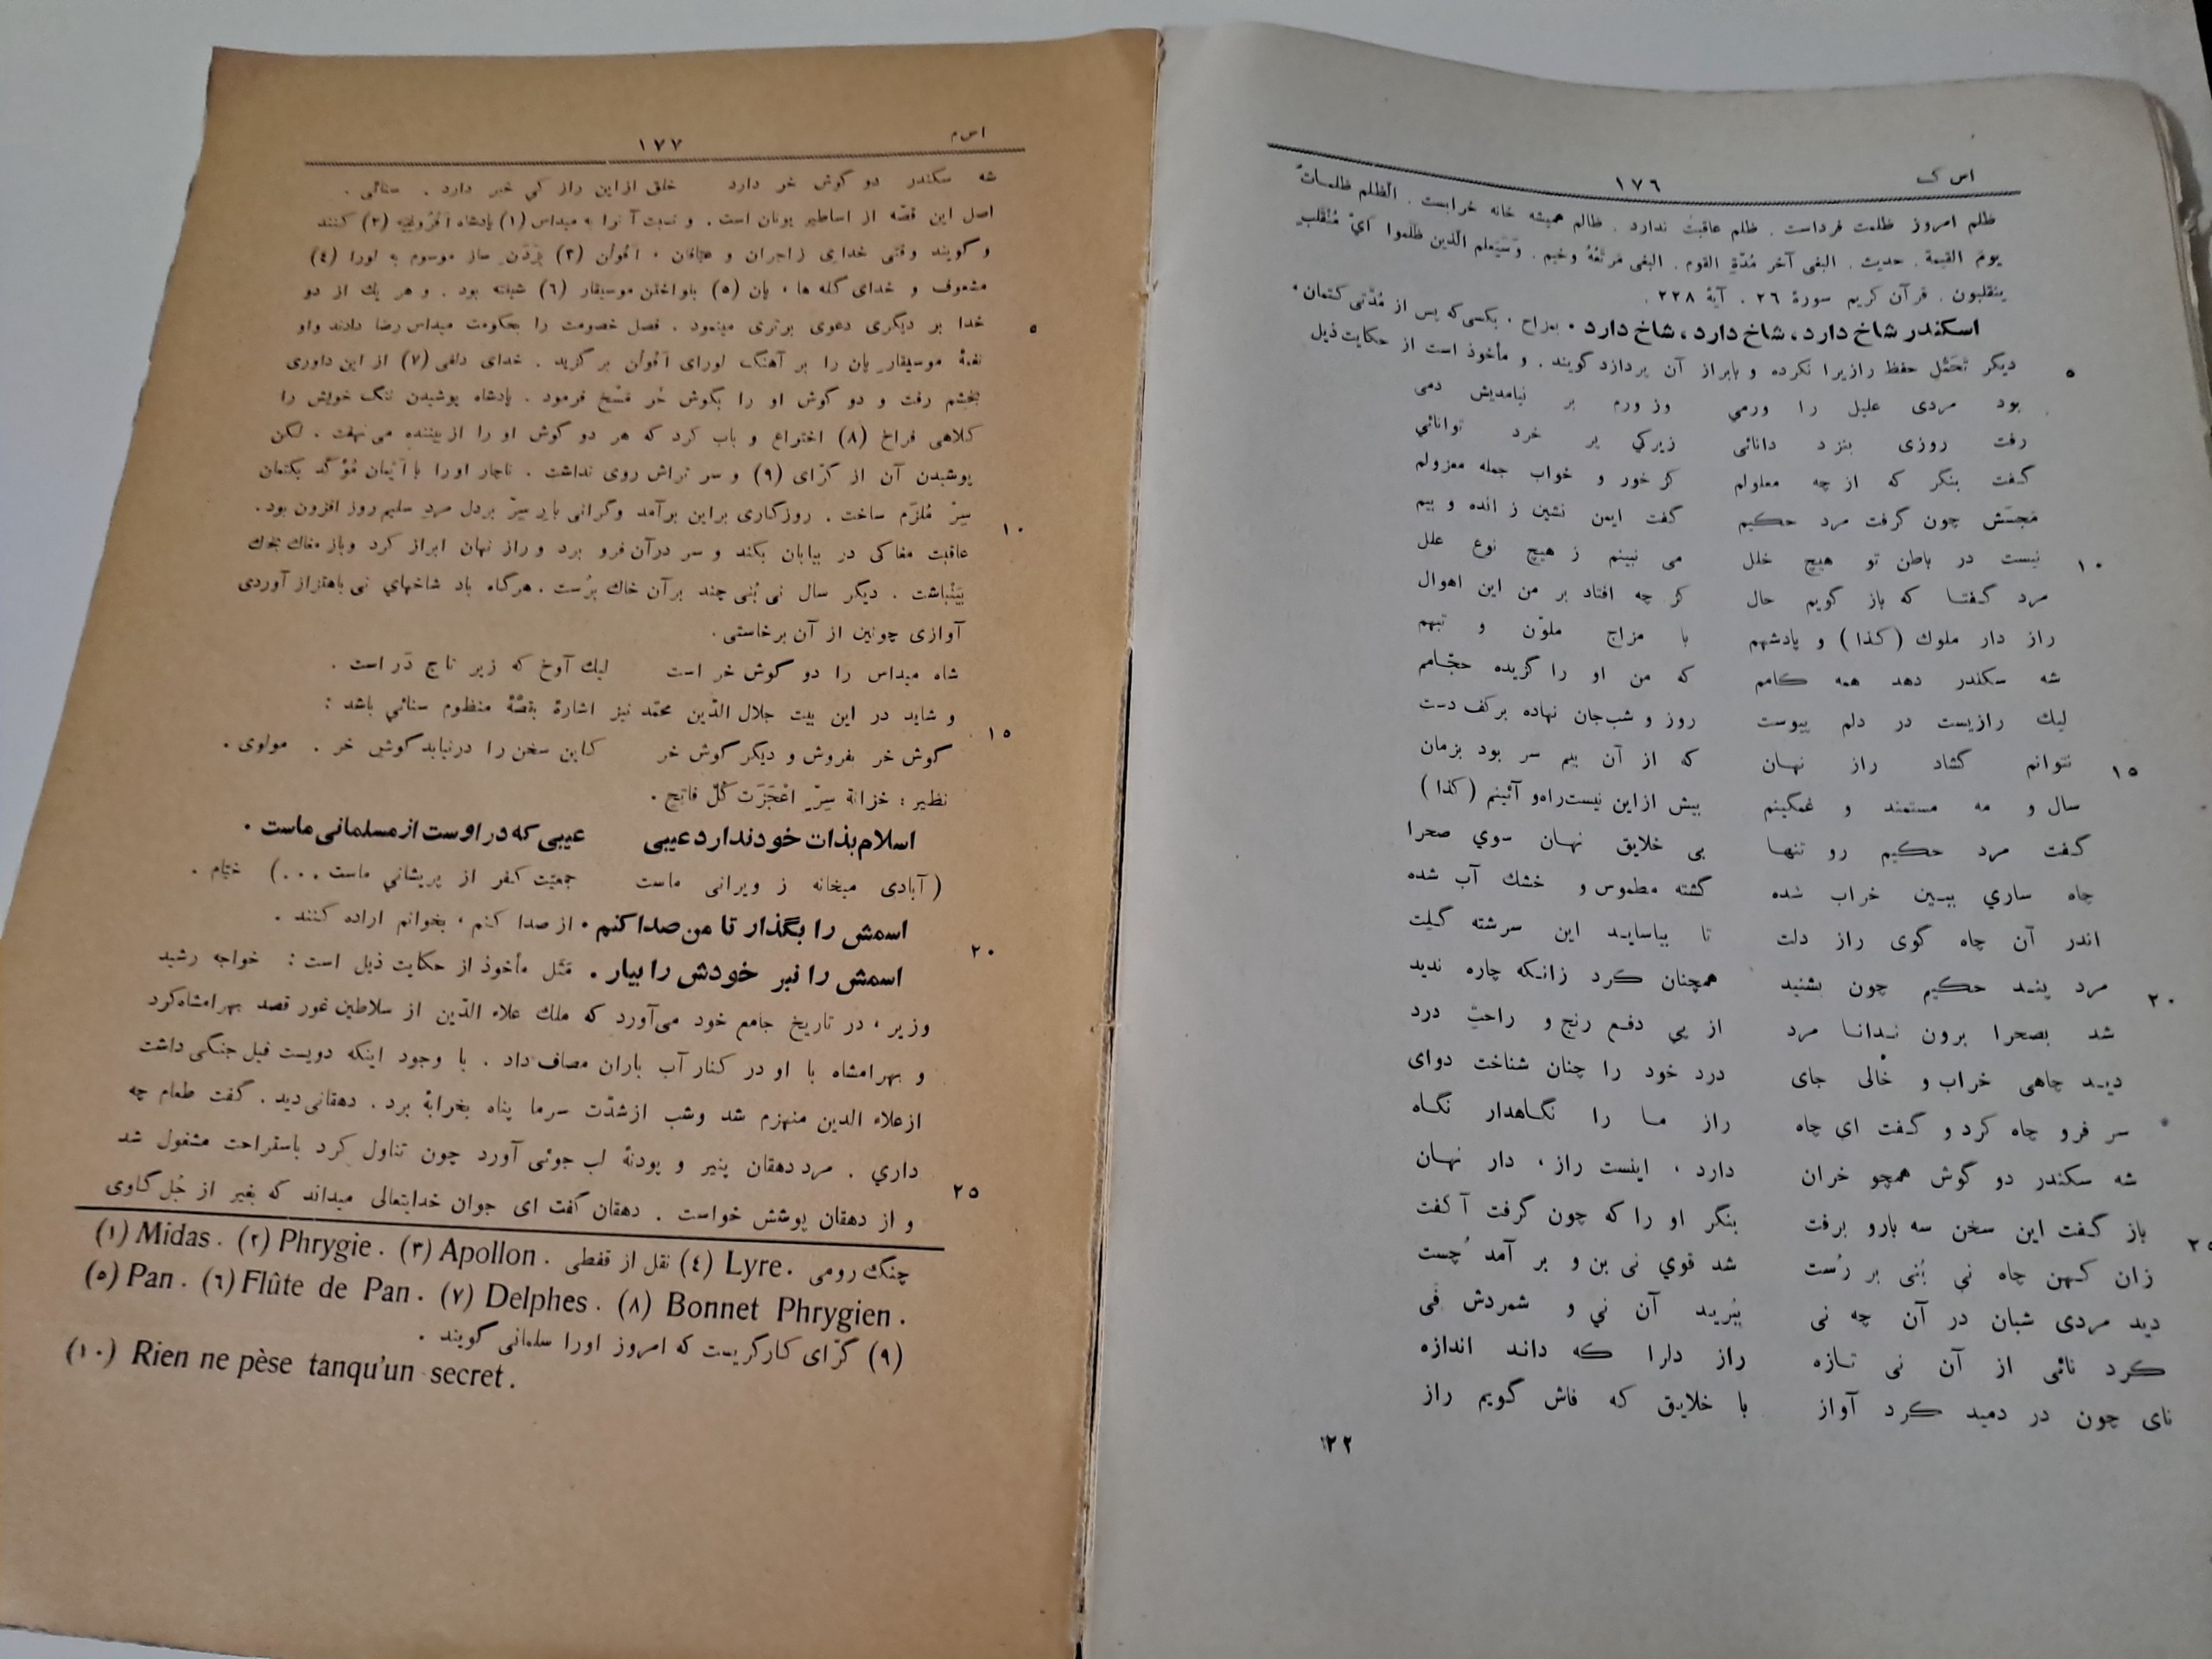 اس ک
١٧٦
ظلم امروز ظلمت فرداست . ظلم عاقبت ندارد . ظالم همیشه خانه خرابست . الظلم ظلمات
یوم القیمة . حدیث . البغی آخر مُدّةِ القوم . البغی مَرتَعُهُ وخیم . وَسَیَعلم الّذین ظلَموا ایَّ مُنْقَلبٍ
ینقلبون . قرآن کریم سورة ٢٦ . آیهٔ ٢٢٨ .
اسکندر شاخ دارد ، شاخ دارد ، شاخ دارد . بمزاح ، بکسی‌که پس از مُدّتی کتمان ،
٥ دیگر تَحَمّلِ حفظ رازیرا نکرده و بابراز آن پردازد گویند . و مأخوذ است از حکایت ذیل
بود مردی علیل را ورمي وز ورم بر نیامدیش دمی
رفت روزی بنزد دانائی زیرکي پر خرد توانائي
گفت بنگر که از چه معلولم کز خور و خواب جمله معزولم
مَجسّش چون گرفت مرد حکیم گفت ایمن نشین ز انده و بیم
١٠ نیست در باطن تو هیچ خلل می نبینم ز هیچ نوع علل
مرد گفتا که باز گویم حال کز چه افتاد بر من این اهوال
راز دار ملوك (کذا) و پادشهم با مزاج ملوّن و تبهم
شه سکندر دهد همه کامم که من او را گزیده حجّامم
لیك رازیست در دلم پیوست روز و شب‌جان نهاده برکف دست
١٥ نتوانم گشاد راز نهان که از آن بیم سر بود بزمان
سال و مه مستمند و غمگینم بیش ازاین نیست‌راه‌و آئینم (کذا)
گفت مرد حکیم رو تنها بی خلایق نهان سوي صحرا
چاه ساري ببین خراب شده گشته مطموس و خشك آب شده
اندر آن چاه گوی راز دلت تا بیاساید این سرشته گلت
٢٠ مرد پند حکیم چون بشنید همچنان کرد زانکه چاره ندید
شد بصحرا برون ندانا مرد از پي دفع رنج و راحتِ درد
دید چاهی خراب و خالی جای درد خود را چنان شناخت دوای
سر فرو چاه کرد و گفت ای چاه راز ما را نگاهدار نگاه
شه سکندر دو گوش همچو خران دارد ، اینست راز ، دار نهان
٢٥ باز گفت این سخن سه بارو برفت بنگر او را که چون گرفت آگفت
زان کهن چاه نی بُنی بر رُست شد قوي نی بن و بر آمد چُست
دید مردی شبان در آن چه نی ببُرید آن ني و شمردش فَی
کرد نائی از آن نی تازه راز دلرا که داند اندازه
نای چون در دمید کرد آواز با خلایق که فاش گویم راز
٢٢
اس م
١٧٧
شه سکندر دو گوش خر دارد خلق ازاین راز کي خبر دارد . سنائی .
اصل این قصّه از اساطیر یونان است . و نسبت آنرا به میداس (١) پادشاه اَفْرُوغیه (٢) کنند
و گویند وقتی خدای زاجران و عیافان ، اَفُولُن (٣) بزَدَنِ ساز موسوم به لورا (٤)
مشعوف و خدای گله ها ، پان (٥) بنواختن موسیقار (٦) شیفته بود . و هر یك از دو
٥ خدا بر دیگری دعوی برتری مینمود . فصل خصومت را بحکومت میداس رضا دادند واو
نغمهٔ موسیقار پان را بر آهنگ لورای اَفُولُن بر گزید . خدای دلفی (٧) از این داوری
بخشم رفت و دو گوش او را بگوش خر مَسْخ فرمود . پادشاه پوشیدن ننگ خویش را
کلاهی فراخ (٨) اختراع و باب کرد که هر دو گوش او را از بیننده می‌نهفت . لکن
پوشیدن آن از گرّای (٩) و سر تراش روی نداشت . ناچار اورا با اَیْمان مُؤکّد بکتمان
١٠ سِرّ مُلزَم ساخت . روزگاری براین برآمد وگرانی بار سِرّ بردل مردِ سلیم روز افزون بود .
عاقبت مغاکی در بیابان بکند و سر درآن فرو برد و راز نهان ابراز کرد وباز مغاك بخاك
بینْباشت . دیگر سال نی بُنی چند برآن خاك برُست . هرگاه باد شاخهاي نی باهتزاز آوردی
آوازی چونین از آن برخاستی .
شاه میداس را دو گوش خر است لیك آوخ که زیر تاج دَر است .
و شاید در این بیت جلال الدّین محمّد نیز اشارهٔ بقصّهٔ منظوم سنائي باشد :
١٥ گوش خر بفروش و دیگر گوش خر کاین سخن را درنیابد گوش خر . مولوی .
نظیر : خزانة سِرّ اعْجَزَت کُلّ فاتِحِ .
اسلام بذات خود ندارد عیبی عیبی که در اوست از مسلمانی ماست .
(آبادی میخانه ز ویرانی ماست جمعیّت کفر از پریشاني ماست ...) خیّام .
٢٠ اسمش را بگذار تا من صدا کنم . از صدا کنم ، بخوانم اراده کنند .
اسمش را نبر خودش را بیار . مَثَل مأخوذ از حکایت ذیل است : خواجه رشید
وزیر ، در تاریخ جامع خود می‌آورد که ملك علاء الدّین از سلاطین غور قصد بهرامشاه‌کرد
و بهرامشاه با او در کنار آب باران مصاف داد . با وجود اینکه دویست فیل جنگی داشت
ازعلاء الدین منهزم شد وشب ازشدّت سرما پناه بخرابهٔ برد . دهقانی‌دید . گفت طعام چه
داري . مرد دهقان پنیر و پودنهٔ لب جوئی آورد چون تناول کرد باستراحت مشغول شد
٢٥ و از دهقان پوشش خواست . دهقان گفت ای جوان خدایتعالی میداند که بغیر از جُل گاوی
(١) Midas . (٢) Phrygie . (٣) Apollon . چنگ رومی . نقل از قفطی (٤) Lyre .
(٥) Pan . (٦) Flûte de Pan . (٧) Delphes . (٨) Bonnet Phrygien .
(٩) گرّای کارگریست که امروز اورا سلمانی گویند .
(١٠) Rien ne pèse tanqu'un secret .